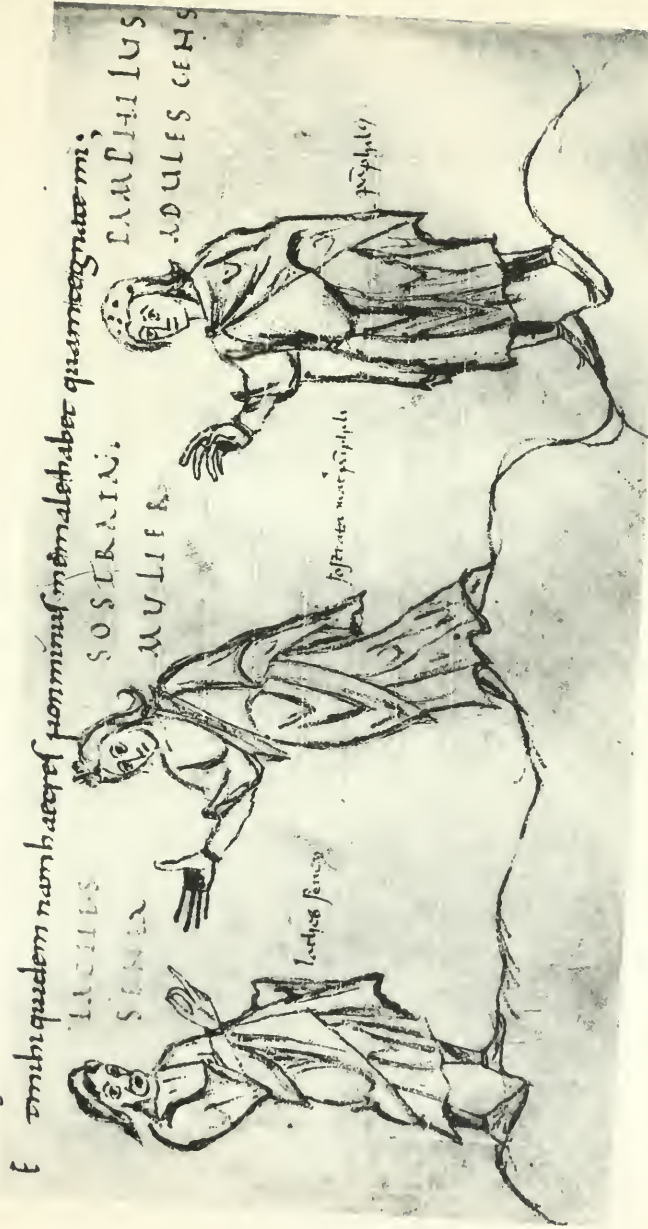 Et mihi quidem nam haec res non minus me male habet quam te gnate mi;
LACHES SOSTRATA. PAMPHILUS
SENEX MULIER ADULESCENS
laches senex sostrata mat pāphili pāphilus